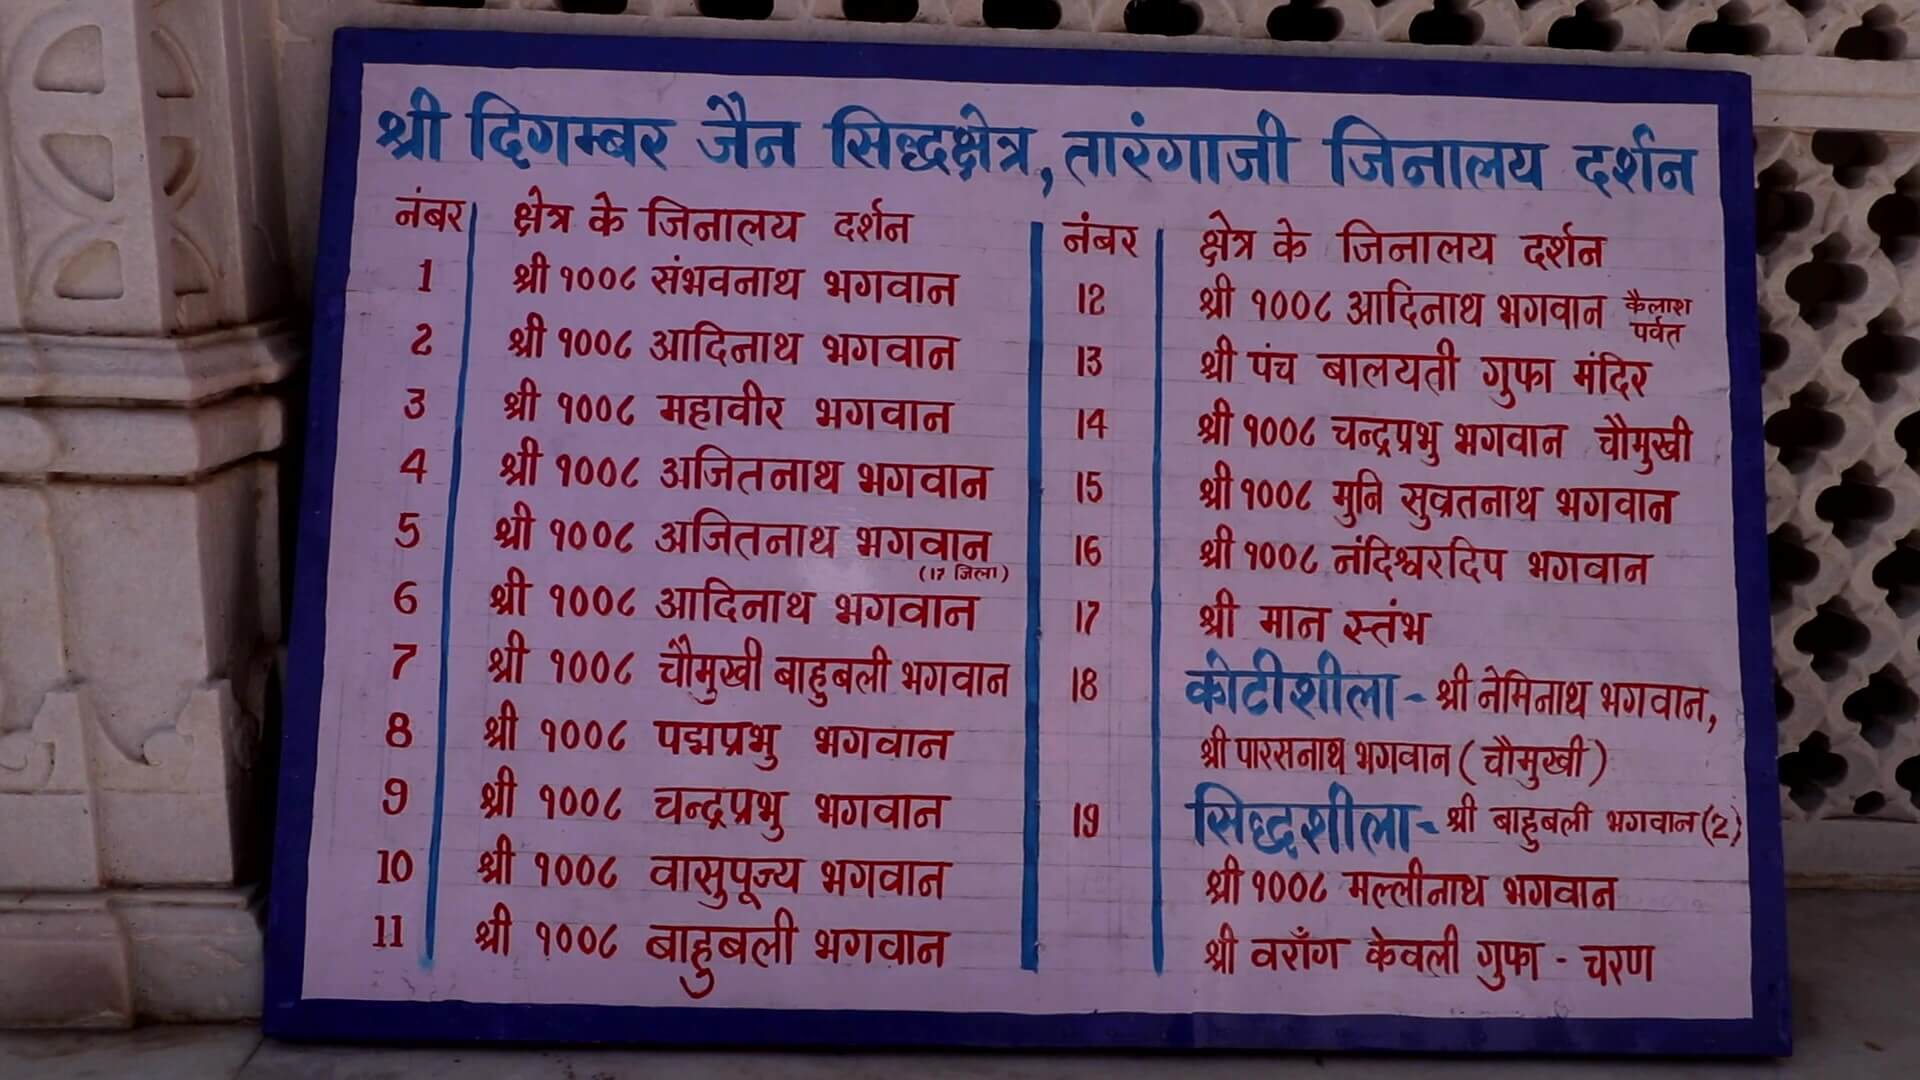 श्री दिगम्बर जैन सिद्धक्षेत्र, तारंगाजी जिनालय दर्शन
नंबर क्षेत्र के जिनालय दर्शन
1 श्री १००८ संभवनाथ भगवान
2 श्री १००८ आदिनाथ भगवान
3 श्री १००८ महावीर भगवान
4 श्री १००८ अजितनाथ भगवान
5 श्री १००८ अजितनाथ भगवान
(17 जिला)
6 श्री १००८ आदिनाथ भगवान
7 श्री १००८ चौमुखी बाहुबली भगवान
8 श्री १००८ पद्मप्रभु भगवान
9 श्री १००८ चन्द्रप्रभु भगवान
10 श्री १००८ वासुपूज्य भगवान
11 श्री १००८ बाहुबली भगवान
नंबर क्षेत्र के जिनालय दर्शन
12 श्री १००८ आदिनाथ भगवान कैलाश
पर्वत
13 श्री पंच बालयती गुफा मंदिर
14 श्री १००८ चन्द्रप्रभु भगवान चौमुखी
15 श्री १००८ मुनि सुव्रतनाथ भगवान
16 श्री १००८ नंदिश्वरदिप भगवान
17 श्री मान स्तंभ
18 कोटीशीला - श्री नेमिनाथ भगवान,
श्री पारसनाथ भगवान ( चौमुखी )
19 सिद्धशीला - श्री बाहुबली भगवान (2)
श्री १००८ मल्लीनाथ भगवान
श्री वराँग केवली गुफा - चरण